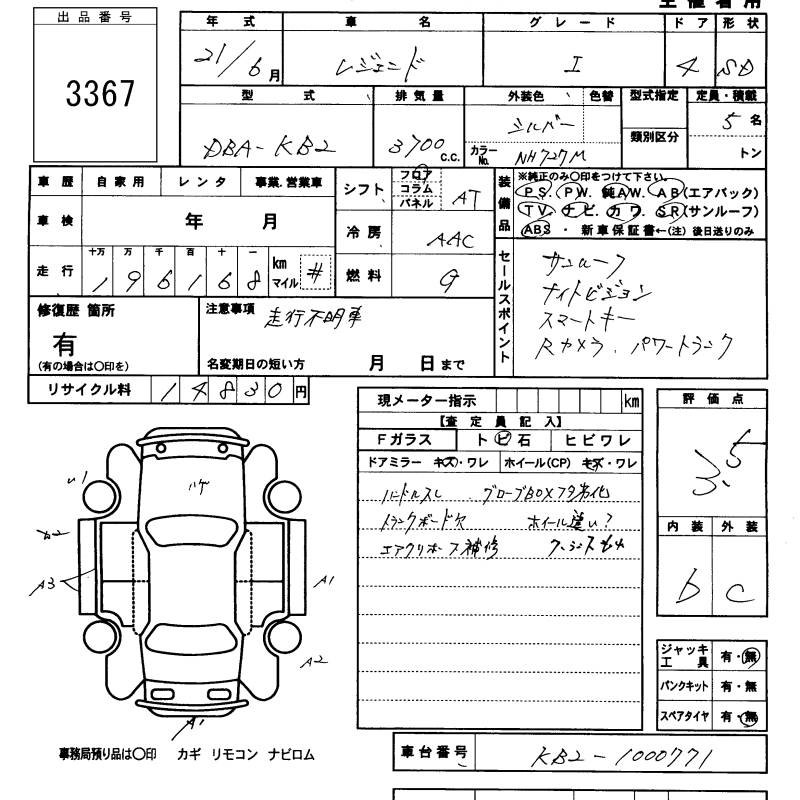 出品番号
3367
年式 車名 グレード ドア 形状
21/6月 レジェンド I 4 SD
型式 排気量 外装色 色替 型式指定 定員・積載
DBA-KB2 3700c.c. シルバー 類別区分 5名
カラーNo. NH727M トン
車歴 自家用 レンタ 事業.営業車
車検 年 月
十万 万 千 百 十 一
走行 1 9 6 1 6 8 km マイル #
シフト フロア コラム パネル AT
冷房 AAC
燃料 G
装備品 ※純正のみ○印をつけて下さい。
PS. PW. 純AW. AB(エアバック)
TV. ナビ. カワ. SR(サンルーフ)
ABS ・ 新車保証書←(注) 後日送りのみ
セールスポイント
サンルーフ
ナイトビジョン
スマートキー
Rカメラ. パワートランク
修復歴 箇所
有
(有の場合は○印を)
注意事項 走行不明車
名変期日の短い方 月 日まで
リサイクル料 14830円
現メーター指示 km
【査定員記入】
Fガラス トビ石 ヒビワレ
ドアミラー キズ・ワレ ホイール(CP) キズ・ワレ
ハンドルスレ グローブBOXフタ劣化
トランクボード欠 ホイール違い?
エアクリホース補修
評価点
3.5
内装 外装
b c
ジャッキ工具 有・無
パンクキット 有・無
スペアタイヤ 有・無
ハゲ
A3
A1
A2
A1
事務局預り品は○印 カギ リモコン ナビロム
車台番号 KB2-1000771